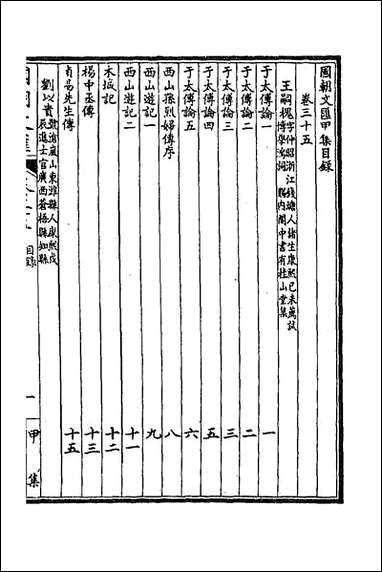 國朝文匯甲集目錄
卷三十五
王嗣槐 字仲昭浙江錢塘人諸生康熙己未薦試
博學鴻詞賜內閣中書有桂山堂集
于太傅論一 一
于太傅論二 二
于太傅論三 三
于太傅論四 五
于太傅論五 六
西山孫烈婦傳序 八
西山遊記一 九
西山遊記二 十一
木坂記 十二
楊中丞傳 十三
貞易先生傳 十五
劉以貴 號滄嵐山東濰縣人康熙戊
辰進士官廣西蒼梧縣知縣
目錄
一
甲集